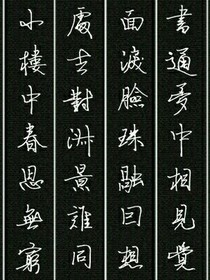 書通夢中相見覺
面淚臉珠融因想
處去對淑景誰同
小樓中春思無窮